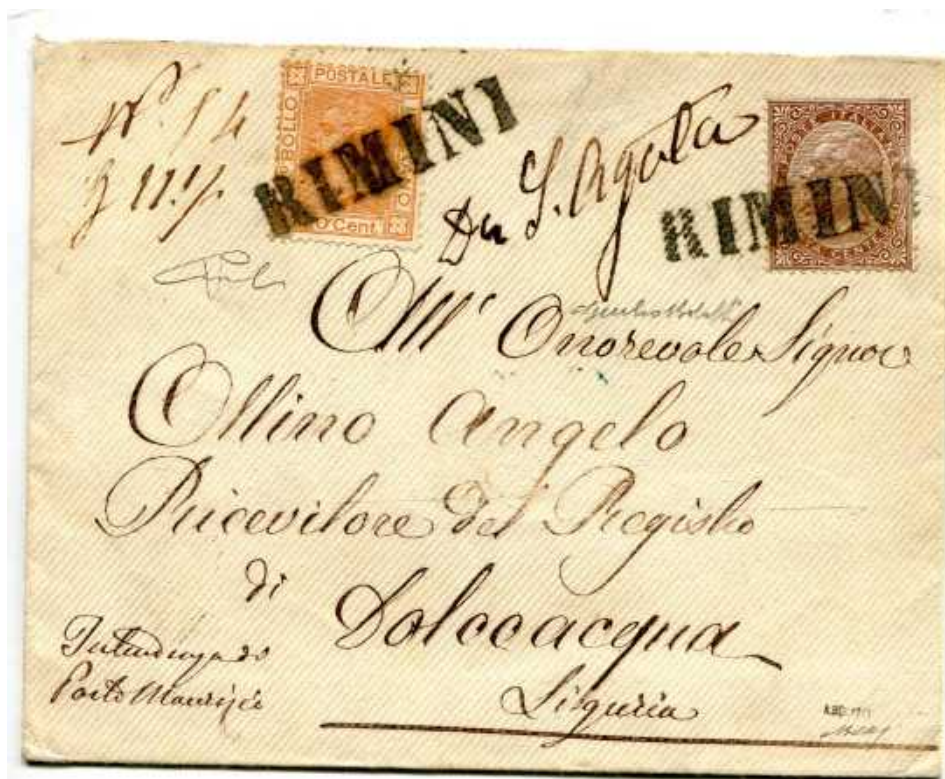 BOLLO POSTALE
RIMINI
O Cent.
Da S. Agata
POSTE ITALIA
RIMINI
All' Onorevole Signor
Ollino Angelo
Ricevitore del Registro
di
Dolceacqua
Liguria
Intendenza di
Porto Maurizio